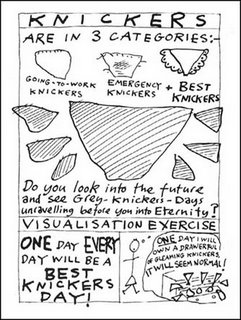 KNICKERS
ARE IN 3 CATEGORIES:-
GOING-TO-WORK KNICKERS
EMERGENCY KNICKERS
+ BEST KNICKERS
Do you look into the future
and see Grey-Knickers-Days
unravelling before you into Eternity?
VISUALISATION EXERCISE
ONE DAY EVERY
DAY WILL BE A
BEST
KNICKERS
DAY!
ONE DAY I WILL
OWN A DRAWERFUL
OF GLEAMING KNICKERS.
IT WILL SEEM NORMAL!